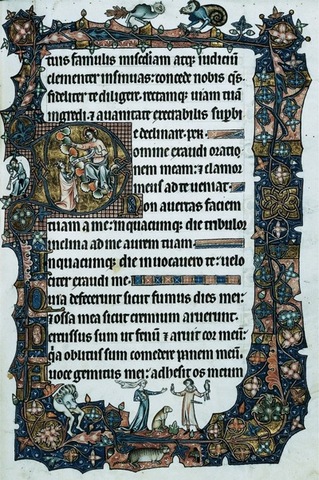 tuis famulis misediam atq; iudiciū
clementer insinuas: concede nobis q̄s
fideliter te diligere. rectamq; uiam tuā
ingredi: & uanitate execrabilis supbie
declinare. per.
Domine exaudi oratio
nem meam: & clamor
meus ad te ueniat.
Non auertas faciem
tuam a me: in quacumq; die tribulor
inclina ad me aurem tuam.
In quacumq; die inuocauero te: uelo
citer exaudi me.
Quia defecerunt sicut fumus dies mei:
& ossa mea sicut cremium aruerunt.
Percussus sum ut fenū & aruit cor meū:
q̄a oblitus sum comedere panem meū.
A uoce gemitus mei: adhesit os meum